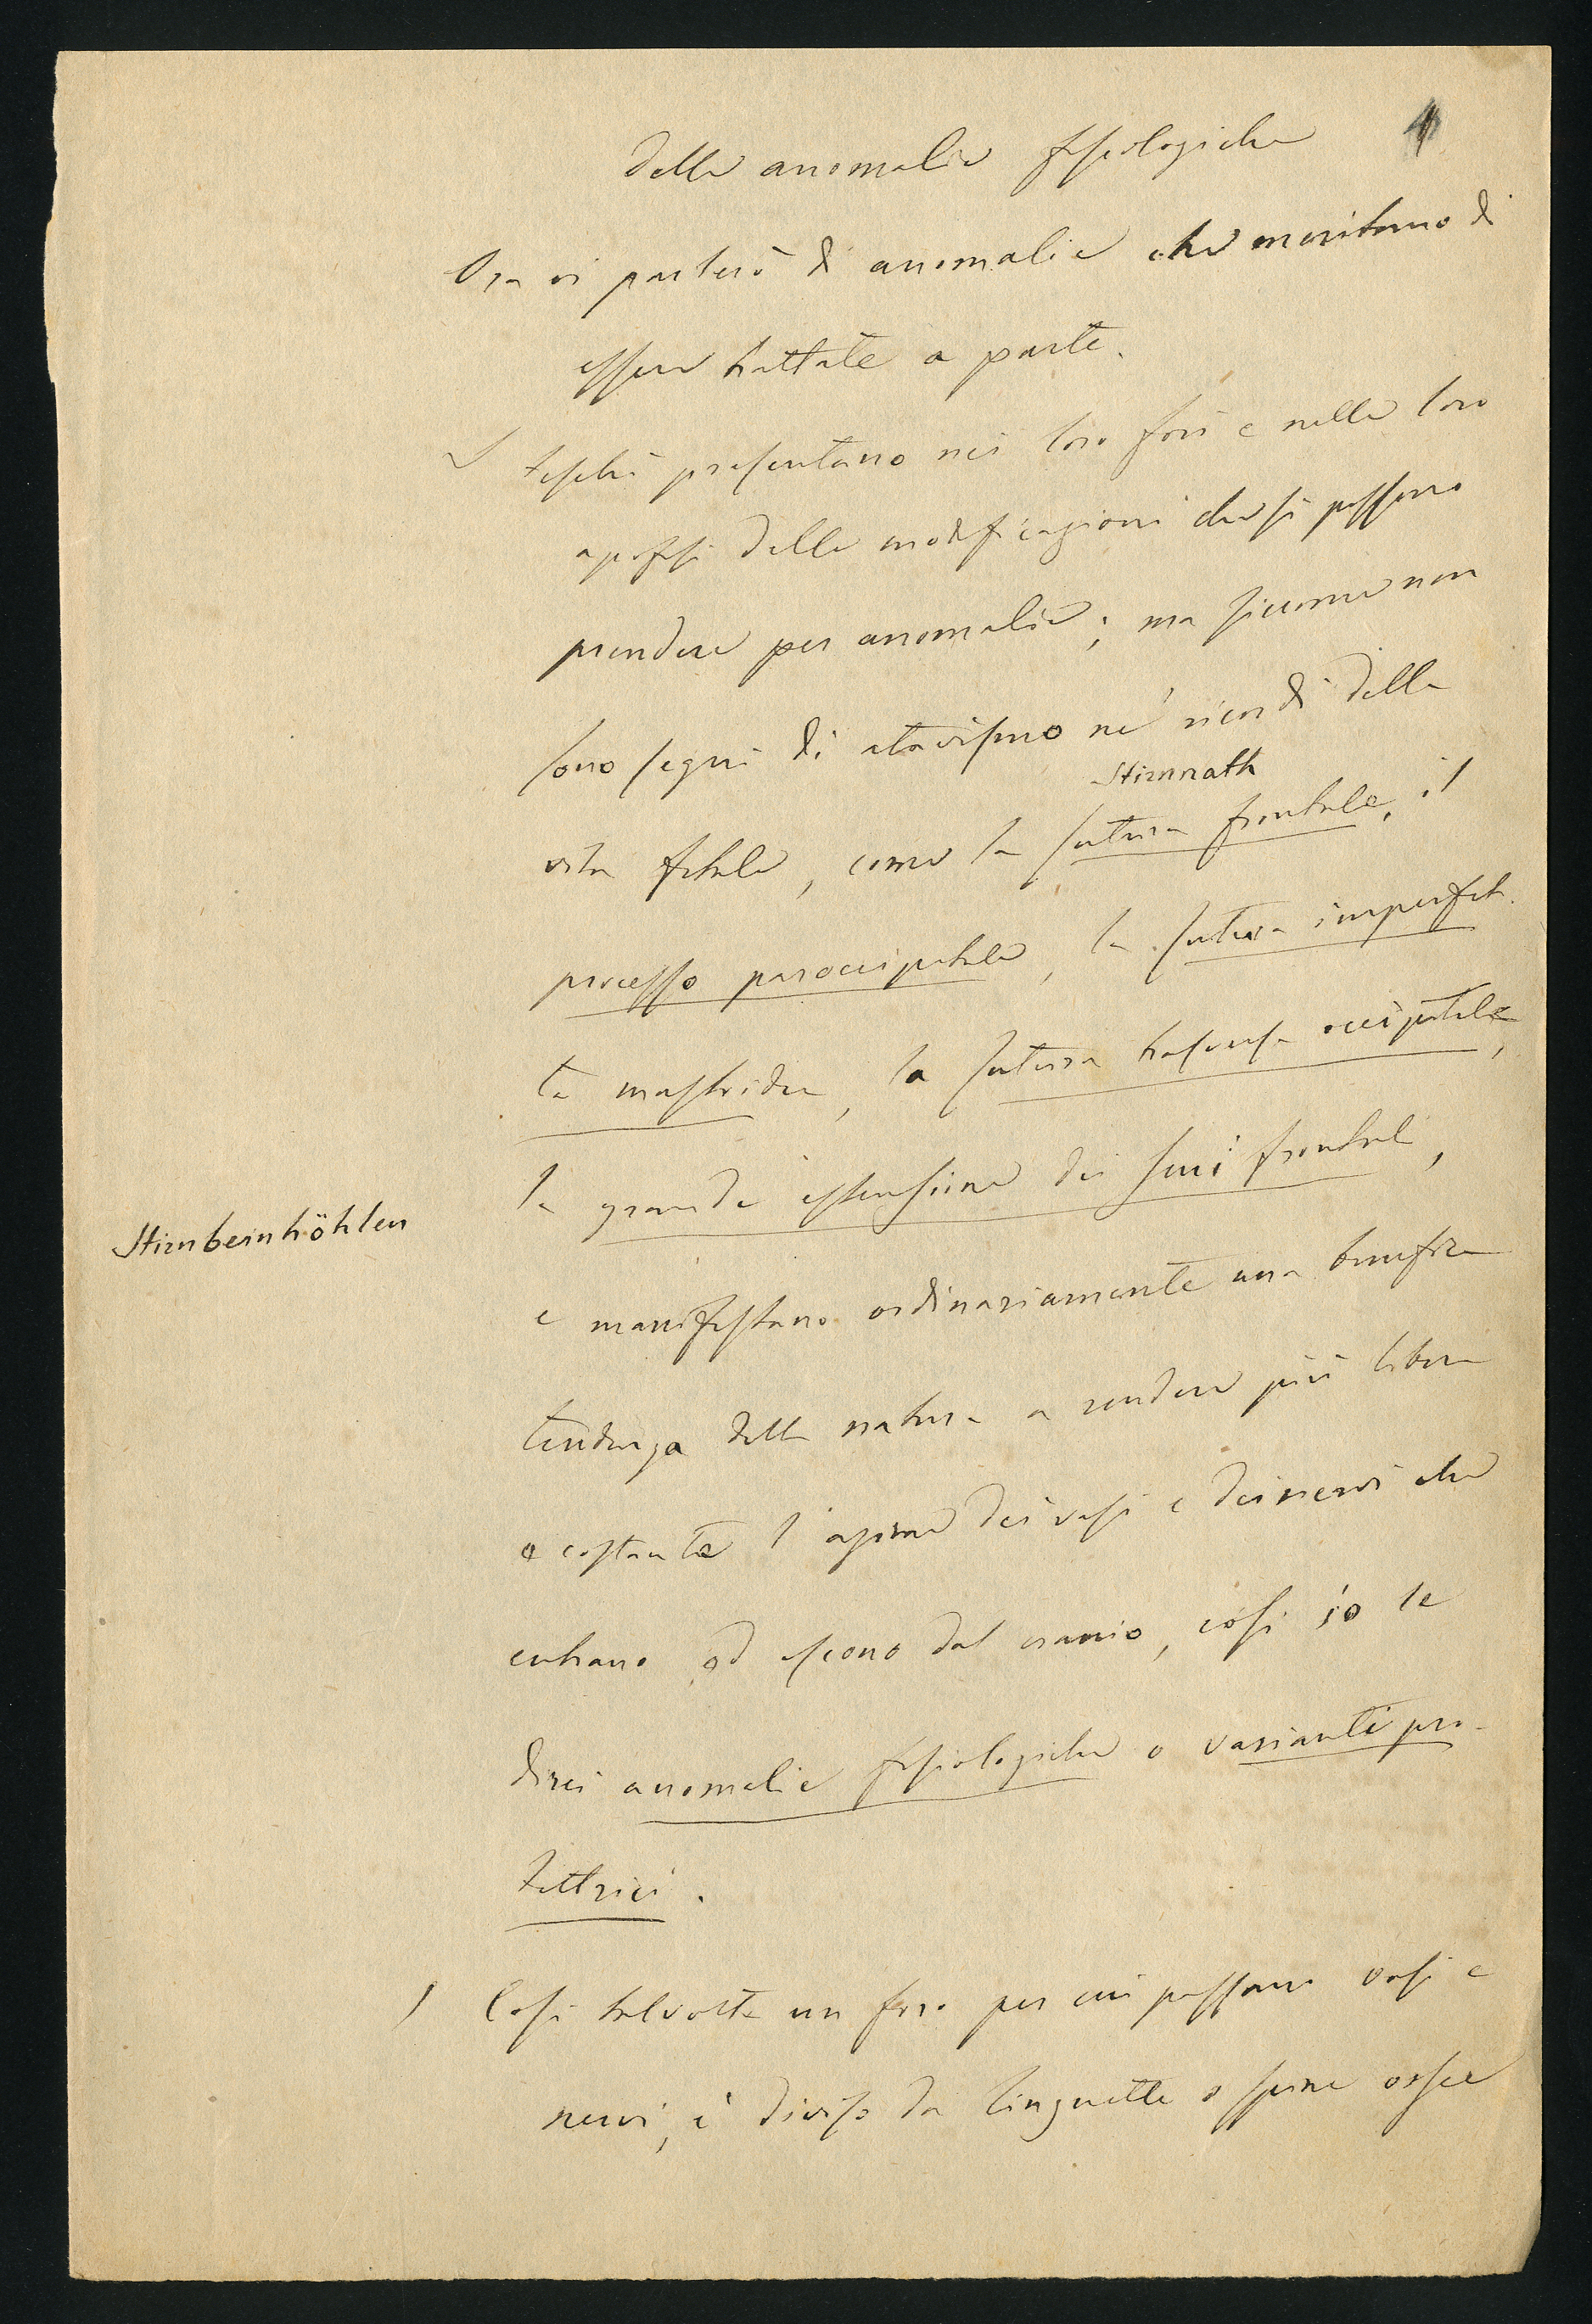 Delle anomalie fisiologiche
1
Ora vi parlerò di anomalie che meritano di
essere trattate a parte.
I teschi presentano nei loro fori e nelle loro
apofisi delle modificazioni che si possono
prendere per anomalie; ma siccome non
sono segni di atavismo nè ricordi della
Stirnnath
vita fetale, come la sutura frontale, il
processo paroccipitale, la sutura imperfet-
ta mastoidea, la sutura trasversa occipitale,
la grande estensione dei seni frontali,
Stirnbeinhöhlen
e manifestano ordinariamente una benefica
tendenza della natura a rendere più libera
e costante l'azione dei vasi e dei nervi che
entrano od escono dal cranio, così io le
direi anomalie fisiologiche o varianti pro-
tettrici.
Così talvolta un foro per cui passano vasi e
nervi, è diviso da linguette o spine ossee